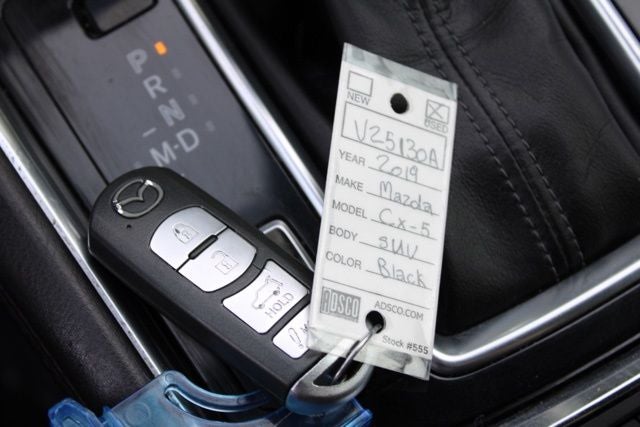 P
R
N
M-D
HOLD
NEW
USED
V25130A
YEAR 2019
MAKE Mazda
MODEL Cx-5
BODY SUV
COLOR Black
ADSCO
ADSCO.COM
Stock #555